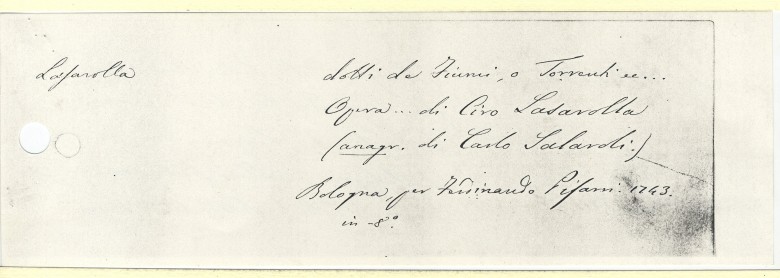 Lasarolla
dotti da Fiumi, o Torrenti ec...
Opera... di Ciro Lasarolla
(anagr. di Carlo Salaroli.)
Bologna, per Ferdinando Pisarri. 1743.
in-8°.